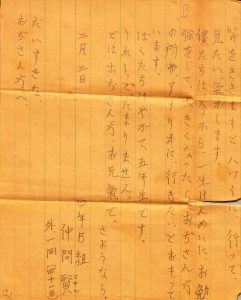 節をききますとハワイに行って、
見たい気がします。
僕たちは今から、一生けんめいに、お勉
強をして、大きくなったら、おぢさん方
の所や、アメリカに、行きたいとおもって
います。
ぼくたちはやがて、五年生です。
うれしくてたまりません。
ではおぢさん方、お元気で。
さようなら。
三月二日
四年B組
仲間 賢
外一同 四十一名
だいすきな、
おぢさん方へ